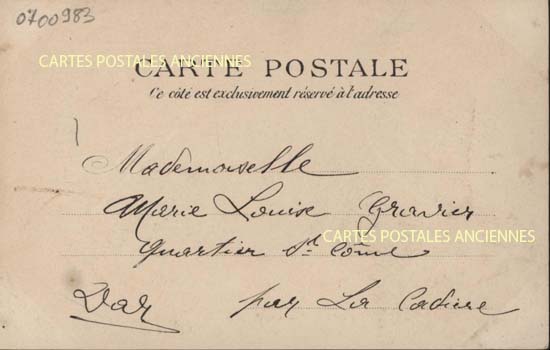 0700983
CARTES POSTALES ANCIENNES
CARTE POSTALE
Ce côté est exclusivement réservé à l'adresse
Mademoiselle
Marie Louise Gravier
CARTES POSTALES ANCIENNES
Quartier St. Côme
Var par La Cadière